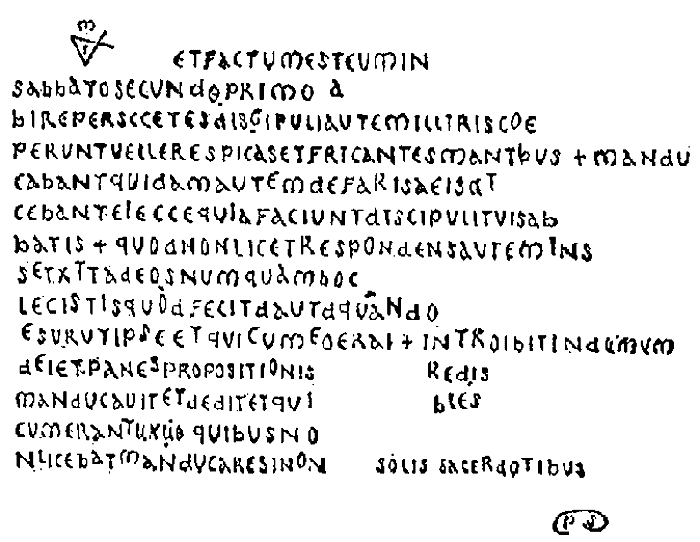 ETFACTUMESTEUMIN
SABBATOSECUNDOPRIMO A
BIREPERSCCETESDISGIPULIAUTEMILLITRISCOE
PERUNTUELLERESPICASETFRICANTESMANTBUS + MANDU
CABANTQUIDAMAUTEMDEFARISAEISAT
CEBANTEIECCEQUIAFACIUNTDISCIPULITUISAB
BATIS + QUODNONLICETRESPONDENSAUTEMINS
SETXTTADEOSNUMQUAMBOC
LECISTISQUODFECITDAUTDQUANDO
ESURUTIPSEETQUICUMEOERAI + INTROIBITINDUMUM
DEIETPANESPROPOSITIONIS REDIS
MANDUCAUITETDEDITETQUI BLES
CUMERANTUXUO QUIBUSNO
NLICEBATMANDUCARESINON SOLIS SACERDOTIBUS
PS